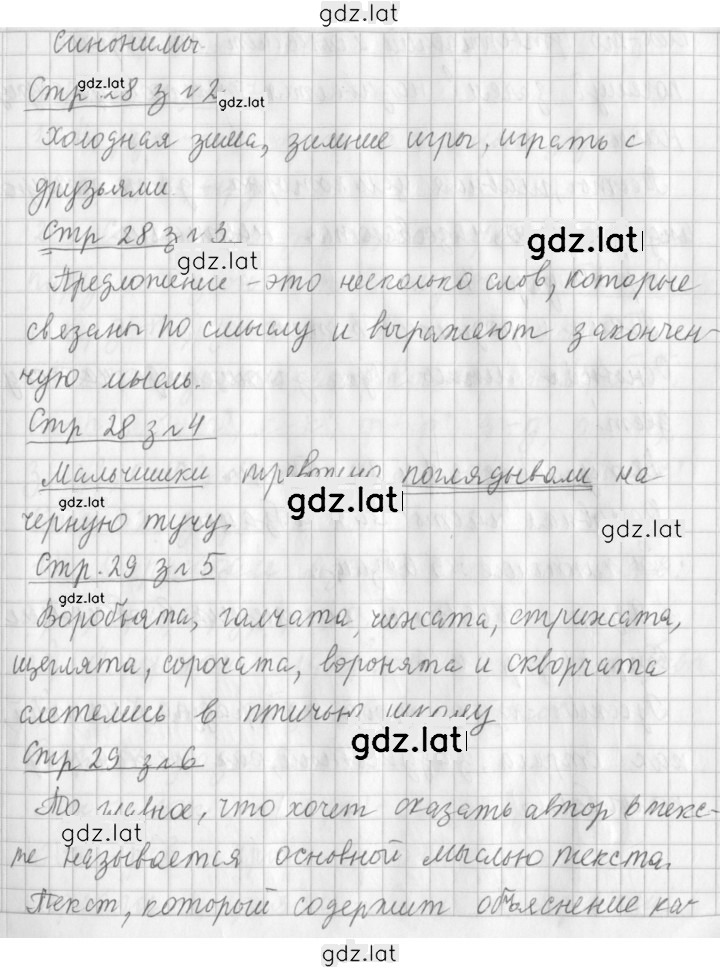 gdz.lat
синонимы.
gdz.lat
Стр 28 з №2.
gdz.lat
Холодная зима, зимние игры, играть с
друзьями.
Стр 28 з №3.
gdz.lat
gdz.lat
Предложение - это несколько слов, которые
связаны по смыслу и выражают закончен-
ную мысль.
Стр 28 з №4
Мальчишки тревожно поглядывали на
gdz.lat
gdz.lat
черную тучу.
gdz.lat
Стр. 29 з №5
gdz.lat
Воробьята, галчата, чижата, стрижата,
щеглята, сорочата, воронята и скворчата
слетелись в птичью школу
gdz.lat
Стр 29 з №6
То главное, что хочет сказать автор в текс-
gdz.lat
те называется основной мыслью текста.
Текст, который содержит объяснение ка-
gdz.lat